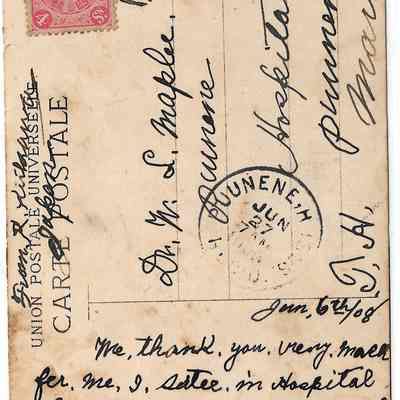 UNION POSTALE UNIVERSELLE
CARTE POSTALE
From
Japan
Dr. W. L. Maplee
Puunene
Hospital
Puunene
Maui
T. H.
PUUNENE, H
JUN
27
Jun, 6th/08
Me, thank, you, very, mach
fer, me, I, satee, in Hospital